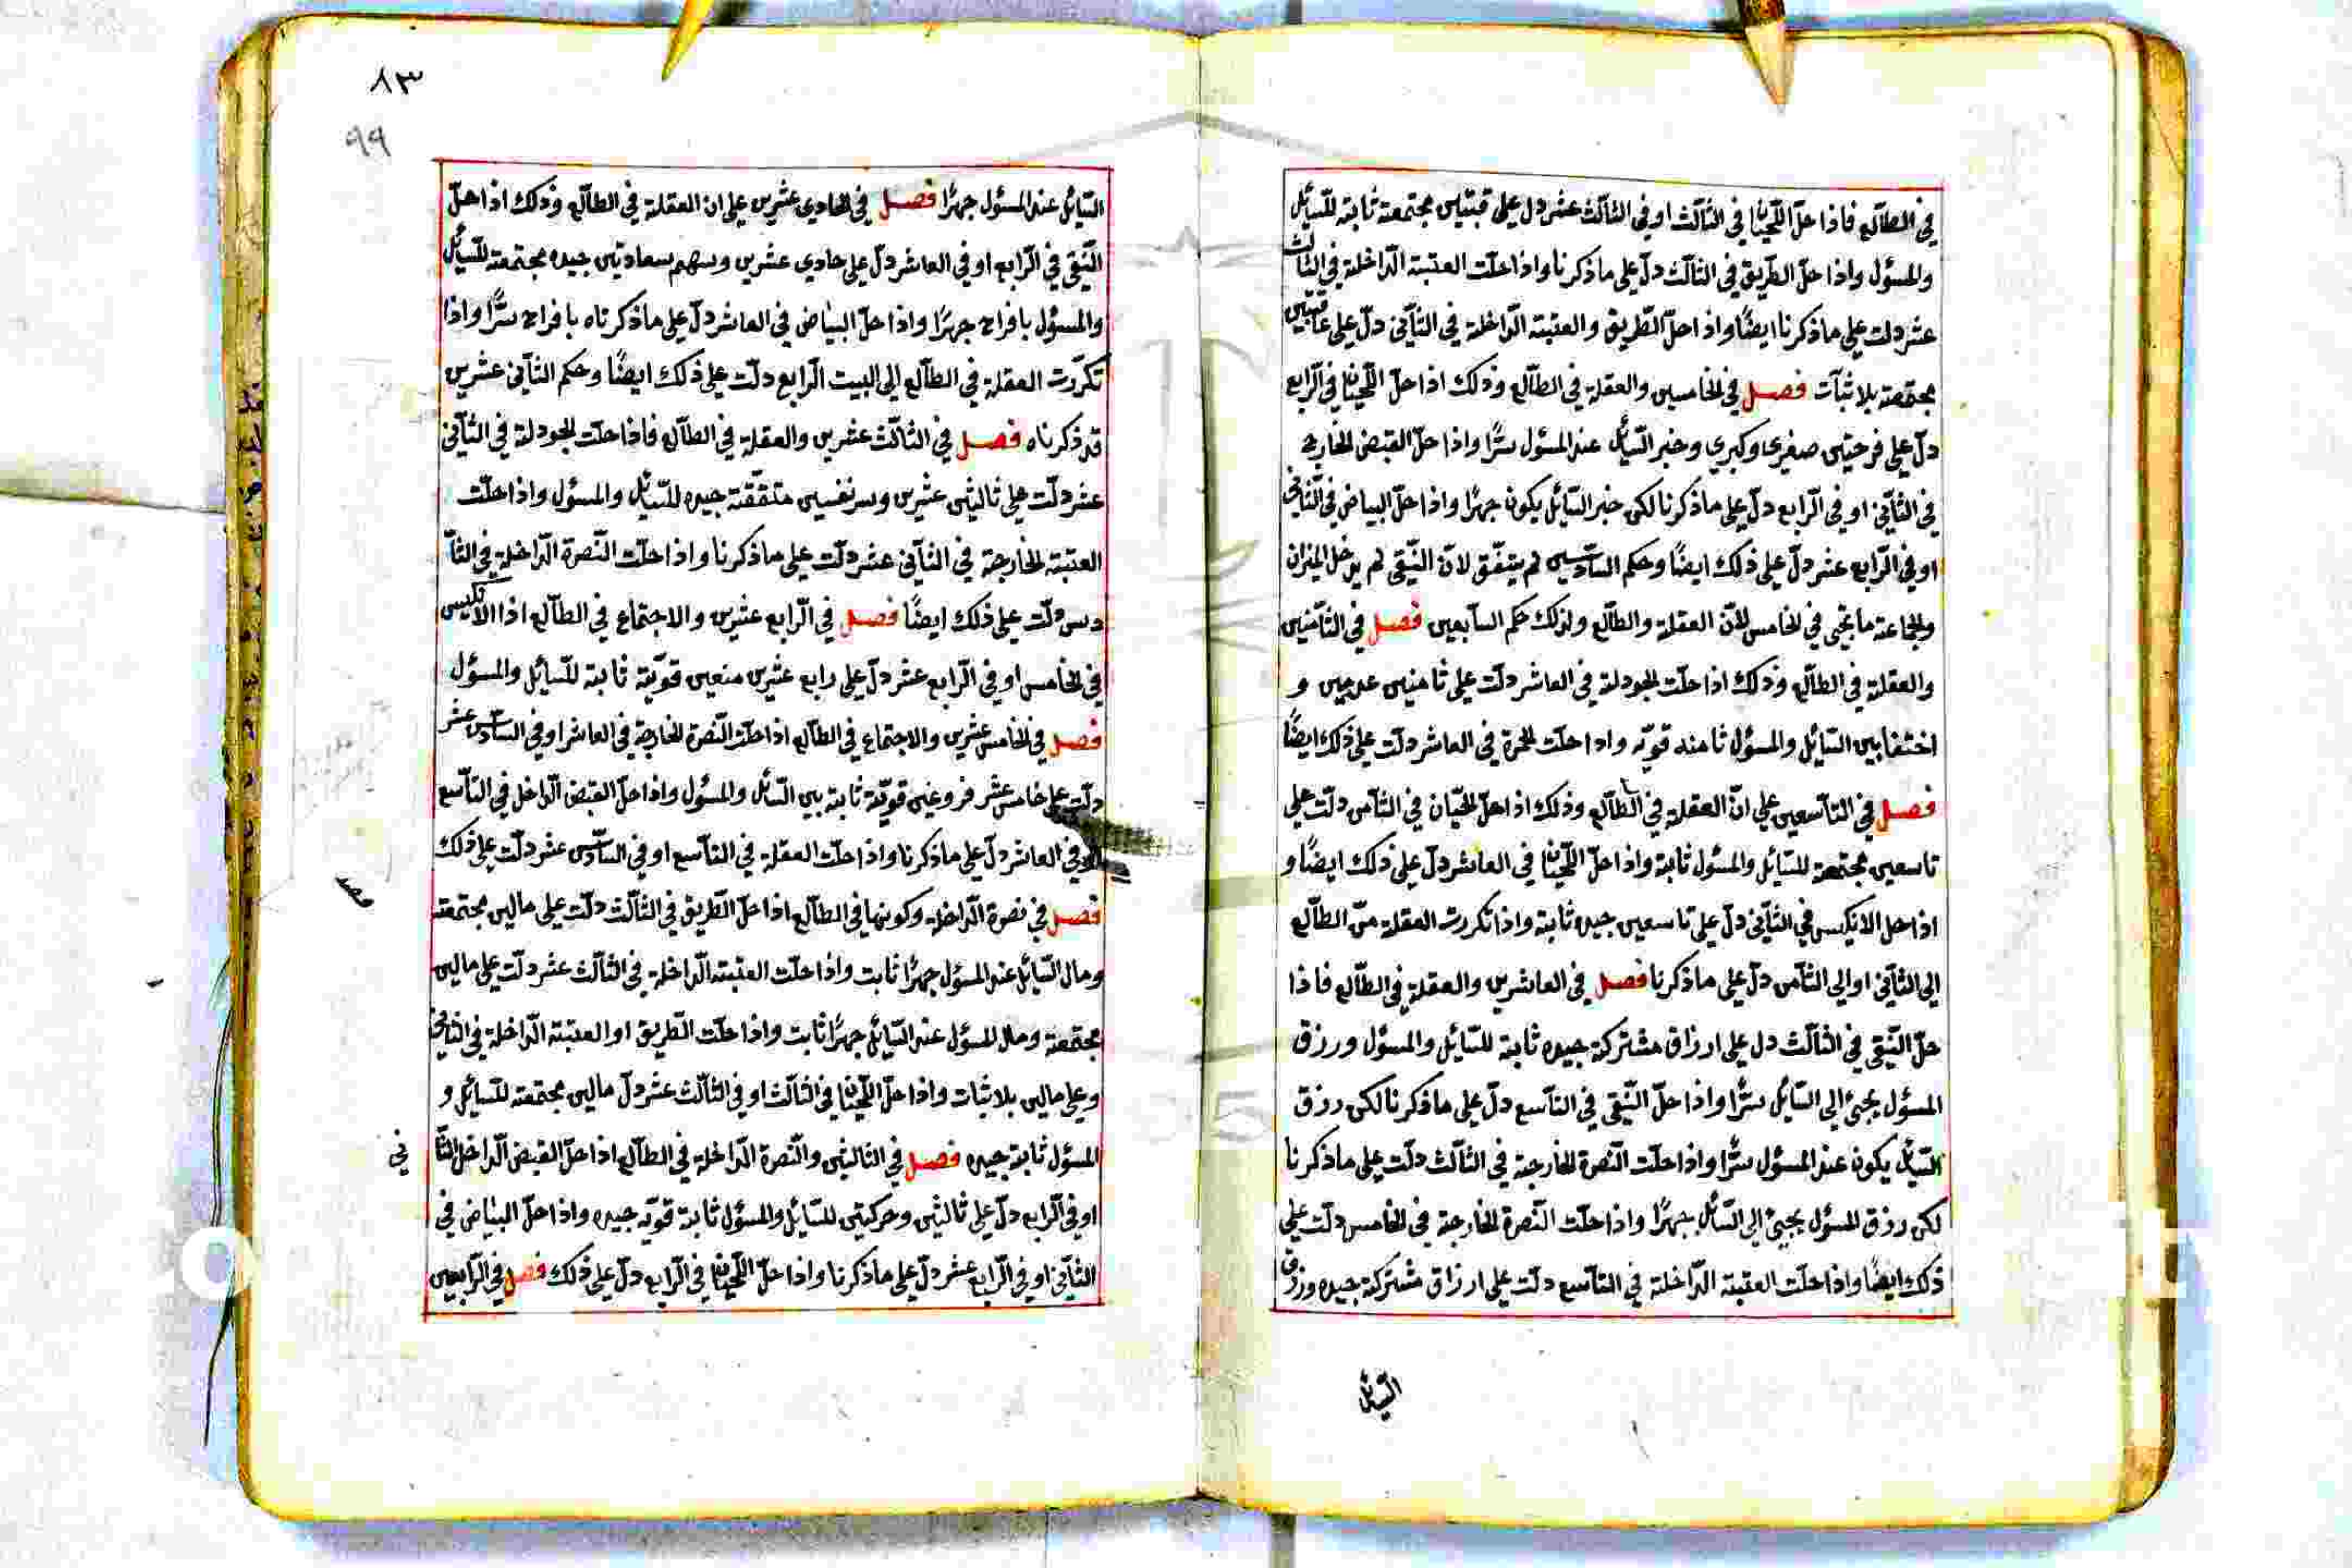 في الطالع فاذا حلّ اللّحيان في الثّالث او في الثّالث عشر دل على قبتين مجتمعة ثابتة للسّائل
والمسؤل واذا حلّ الطّريق في الثالث دلّ على ما ذكرنا واذا حلّت العتبة الدّاخلة في الثالث
عشر دلت على ما ذكرنا ايضًا واذا حلّ الطّريق والعتبة الدّاخلة في الثّاني دلّ على
مجتمعة بلا ثبات فصل في الخامسين والعقلة في الطالع وذلك اذا حلّ اللّحيان في الرّابع
دلّ على فرحتين صغيرى وكبيري وخبر السّائل عند المسؤل سرًّا واذا حلّ القبض الخارج
في الثّاني او في الرّابع دلّ على ما ذكرنا لكن خبر السّائل يكون جهرًا واذا حلّ البياض في الثّاني
او في الرّابع عشر دلّ على ذلك ايضًا وحكم السّادسين لم يتفّق لانّ النّقي لم يدخل الميزان
والجماعة ما تجي في الخامس لانّ العقلة والطالع ولذلك حكم السّابعين فصل في الثّامنين
والعقلة في الطالع وذلك اذا حلّت الجودلة في العاشر دلّت على ثامنين عدمين و
اختفا بين السّائل والمسؤل ثامنه قويّه واذا حلت الحمرة في العاشر دلّت على ذلك ايضًا
فصل في التاسعين على انّ العقلة في الطالع وذلك اذا حلّ اللحيان في الثّامن دلّت على
تاسعين مجتمعة للسّائل والمسؤل ثابتة واذا حلّ اللّحيان في العاشر دلّ على ذلك ايضًا و
اذا حل الانكيس في الثّاني دلّ على تاسعين جيده ثابتة واذا تكررت العقلة من الطالع
الى الثّاني او الى الثّامن دلّ على ما ذكرنا فصل في العاشرين والعقلة في الطّالع فاذا
حلّ النّقي في الثالث دل على ارزاق مشتركة جيده ثابتة للسّائل والمسؤل ورزق
المسؤل يجئ الى السّائل سرًّا واذا حلّ النّقي في التاسع دلّ على ما ذكرنا لكن رزق
السّائل يكون عند المسؤل سرًّا واذا حلّت النّصرة الخارجة في الثالث دلّت على ما ذكرنا
لكن رزق المسؤل يجئ الى السّائل جهرًا واذا حلّت النّصرة الخارجة في الخامس دلّت على
ذلك ايضًا واذا حلّت العتبة الدّاخلة في التاسع دلّت على ارزاق مشتركة جيده ورزق
السّائل
٨٣
٩٩
السّائل عند المسؤل جهرًا فصل في الحادي عشرين على ان العقلة في الطالع وذلك اذا حلّ
النّقي في الرّابع او في العاشر دلّ على حادي عشرين وسهم سعادتين جيده مجتمعة للسّائل
والمسؤل بافراح جهرًا واذا حلّ البياض في العاشر دلّ على ما ذكرناه بافراح سرًّا واذا
تكررت العقلة في الطالع الى البيت الرابع دلّت على ذلك ايضًا وحكم الثّاني عشرين
قد ذكرناه فصل في الثالث عشرين والعقلة في الطالع فاذا حلت الجودلة في الثّاني
عشر دلّت على ثالثين عشرين وسر نفسين متفقّة جيده للسّائل والمسؤل واذا حلّت
العتبة الخارجة في الثّاني عشر دلّت على ما ذكرنا واذا حلّت النّصرة الدّاخلة في السّا
دس دلّت على ذلك ايضًا فصل في الرّابع عشرين والاجتماع في الطالع اذا الانكيس
في الخامس او في الرّابع عشر دلّ على رابع عشرين منعين قويّة ثابتة للسّائل والمسؤل
فصل في الخامس عشرين والاجتماع في الطالع اذا حلّت النّصرة الخارجة في العاشر او في السّادس عشر
دلّت على خامس عشر فروعين قويّة ثابتة بين السّائل والمسؤل واذا حلّ القبض الدّاخل في التاسع
او في العاشر دلّ على ما ذكرنا واذا حلّت العقلة في التاسع او في السّادس عشر دلّت على ذلك
فصل في نصرة الدّاخله وكونها في الطالع اذا حلّ الطّريق في الثّالث دلّت على مالين مجتمعة
ومال السّائل عند المسؤل جهرًا ثابت واذا حلّت العتبة الدّاخلة في الثالث عشر دلّت على مالين
مجتمعة ومال المسؤل عند السّائل جهرًا ثابت واذا حلّت الطّريق او العتبة الدّاخلة في الثاني
وعلى مالين بلا ثبات واذا حلّ اللّحيان في الثالث او في الثّالث عشر دلّ مالين مجتمعة للسّائل و
المسؤل ثابتة جيده فصل في الثالثين والنّصرة الدّاخلة في الطالع اذا حلّ القبض الدّاخل الثّا
ني
او في الرّابع دلّ على ثالثين وحركتين للسّائل والمسؤل ثابتة قويّه جيده واذا حلّ البياض في
الثّاني او في الرّابع عشر دلّ على ما ذكرنا واذا حلّ اللّحيان في الرّابع دلّ على ذلك فصل في الرّابعين